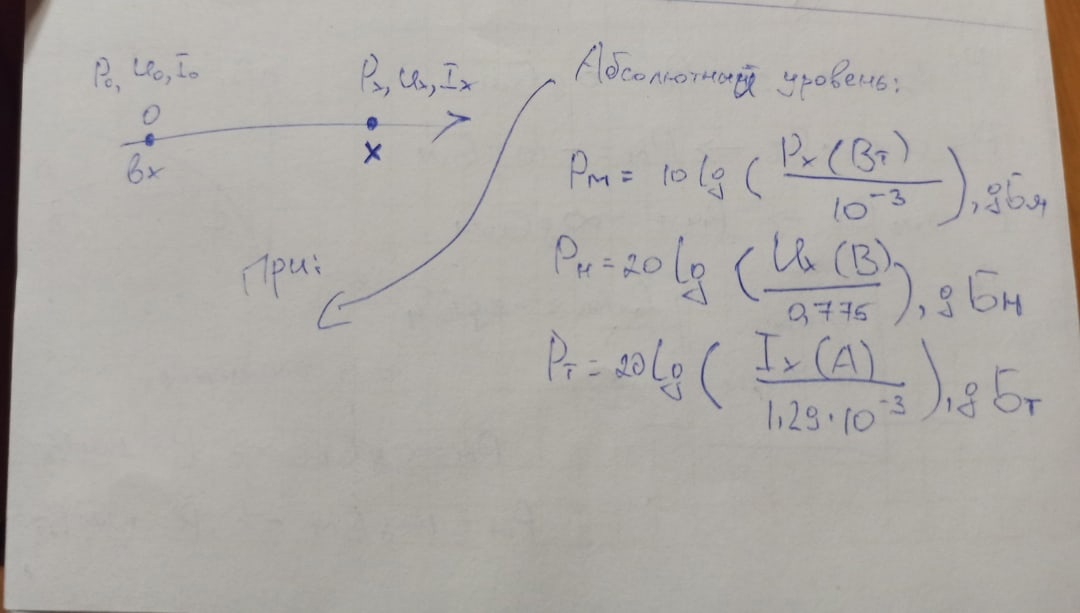 P₀, U₀, I₀
Pₓ, Uₓ, Iₓ
0
вх
x
При:
Абсолютный уровень:
Pм = 10 lg ( Pₓ (Вт) / 10⁻³ ), дБм
Pн = 20 lg ( Uₓ (В) / 0,775 ), дБн
Pт = 20 lg ( Iₓ (А) / 1,29·10⁻³ ), дБт